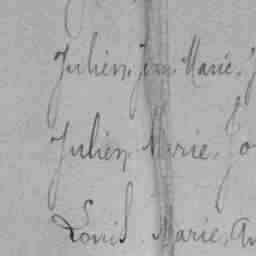 Julien, Jean Marie, J
Julien Marie, Jo
Louis Marie, An